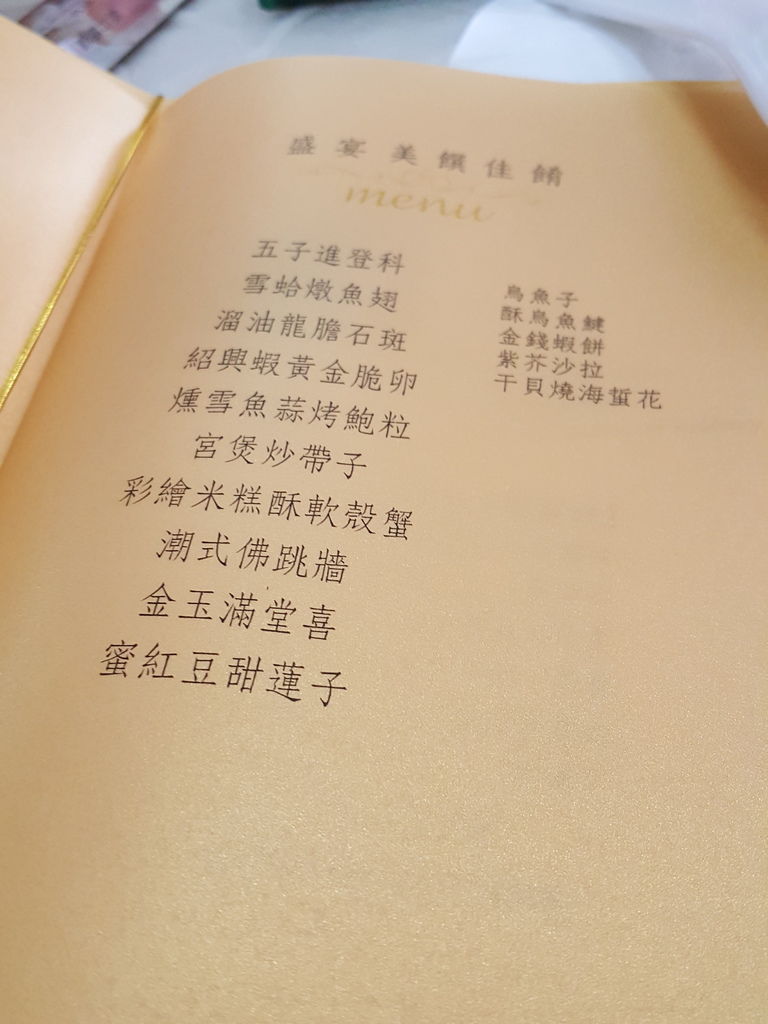 盛宴美饌佳餚
menu
五子進登科
雪蛤燉魚翅
溜油龍膽石斑
紹興蝦黃金脆卵
燻雪魚蒜烤鮑粒
宮煲炒帶子
彩繪米糕酥軟殼蟹
潮式佛跳牆
金玉滿堂喜
蜜紅豆甜蓮子
烏魚子
酥烏魚鰎
金錢蝦餅
紫芥沙拉
干貝燒海蜇花